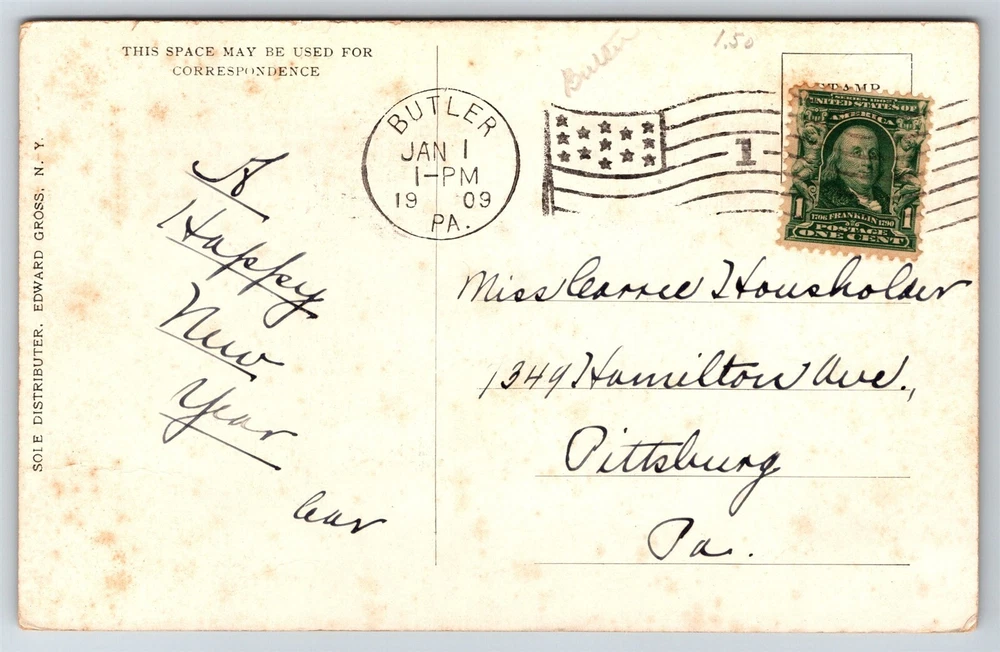 THIS SPACE MAY BE USED FOR
CORRESPONDENCE
Butler
1.50
BUTLER
JAN 1
1-PM
19 09
PA.
1
STAMP
SERIES 1902
UNITED STATES OF
AMERICA
1 1
1706 FRANKLIN 1790
POSTAGE
ONE CENT
A
Happy
New
Year
Miss Carrie Housholder
1349 Hamilton Ave.,
Pittsburg
Pa.
SOLE DISTRIBUTER, EDWARD GROSS, N. Y.